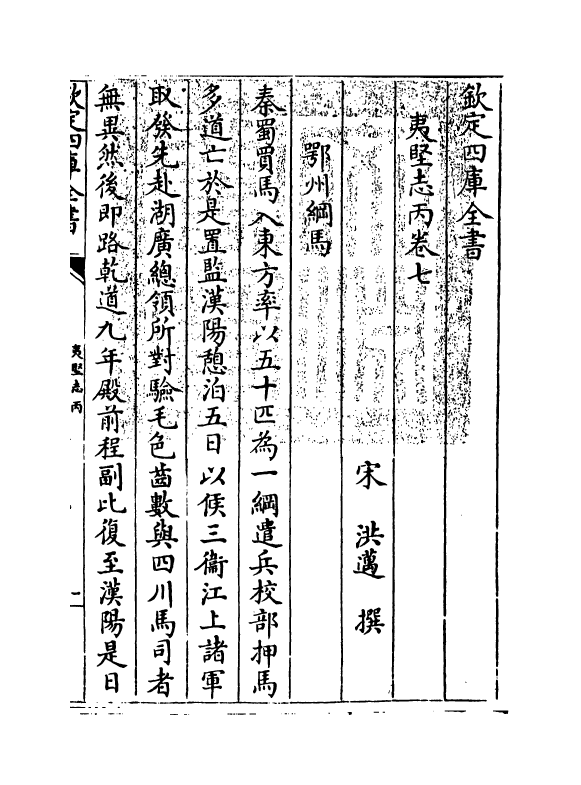 欽定四庫全書
夷堅志丙卷七
宋 洪邁 撰
鄂州綱馬
秦蜀買馬入東方率以五十匹為一綱遣兵校部押馬
多道亡於是置監漢陽憩泊五日以候三衞江上諸軍
取發先赴湖廣總領所對驗毛色齒數與四川馬司者
無異然後即路乾道九年殿前程副比復至漢陽是日
欽定四庫全書
夷堅志丙
一